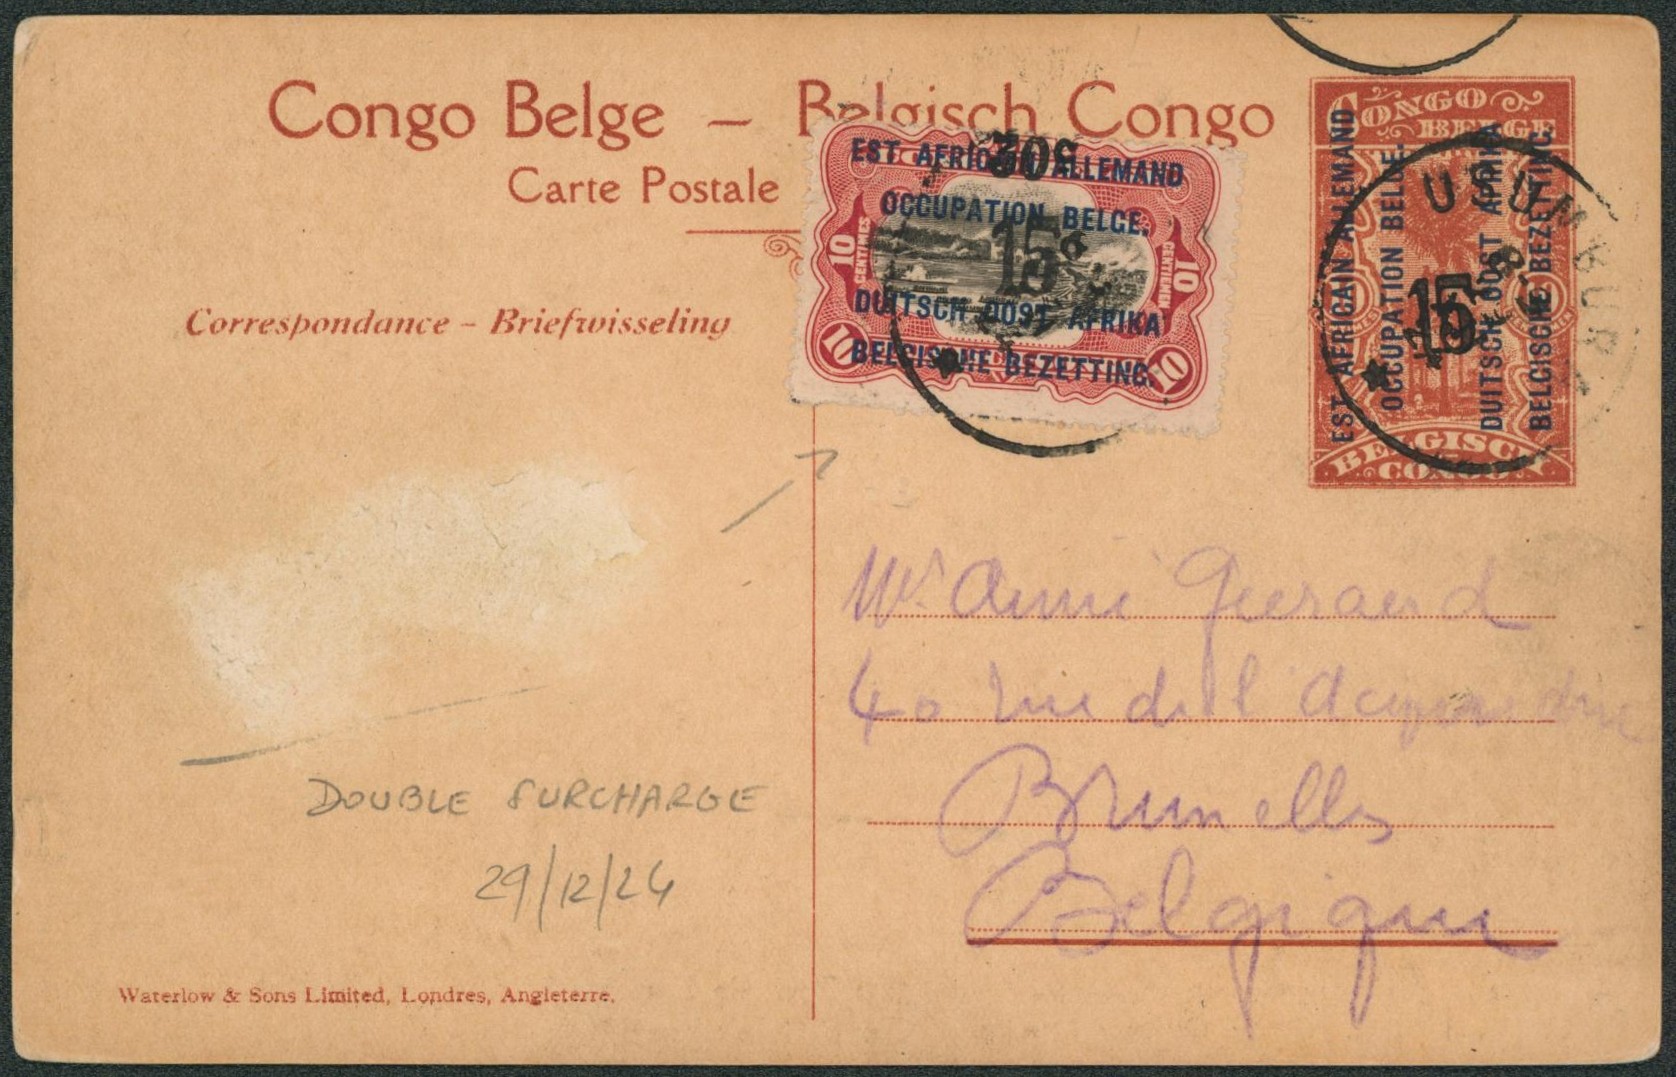 Congo Belge – Belgisch Congo
Carte Postale
Correspondance – Briefwisseling
EST AFRICAIN ALLEMAND
OCCUPATION BELGE.
15c
10 CENTIMES
10 CENTIEMEN
DUITSCH OOST AFRIKA
BELGISCHE BEZETTING.
10
10
CONGO
BELGE
EST AFRICAIN ALLEMAND
OCCUPATION BELGE.
15
DUITSCH OOST AFRIKA
BELGISCHE BEZETTING.
BELGISCH
CONGO
USUMBURA
DOUBLE SURCHARGE
29/12/24
Geeraerd
40 rue de l'
Bruxelles
Belgique
Waterlow & Sons Limited, Londres, Angleterre.